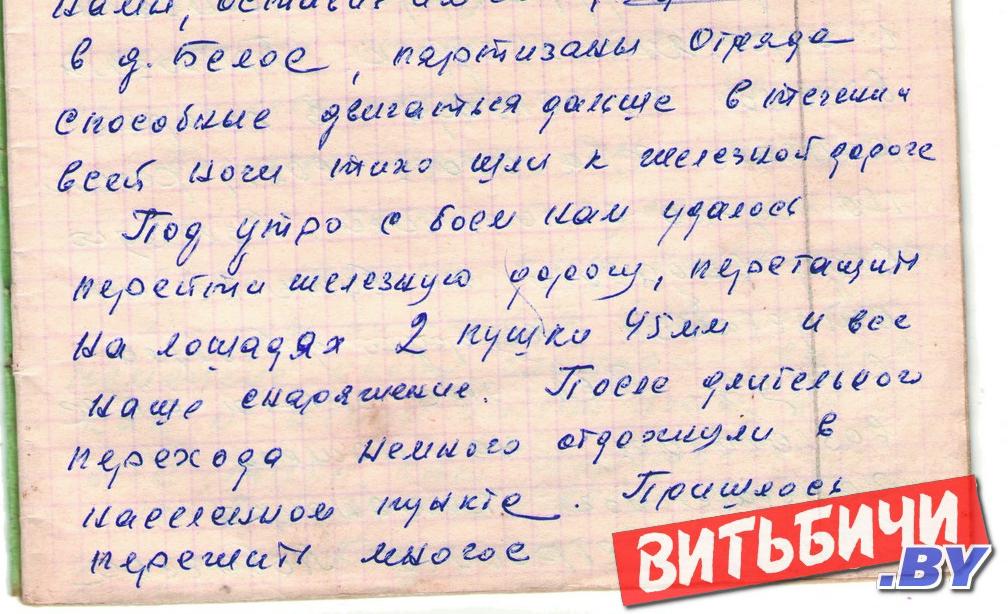 нами,
в д. Белое, партизаны отряда
способные двигаться дальше в течении
всей ночи тихо шли к железной дороге
Под утро с боем нам удалось
перейти железную дорогу, перетащить
на лошадях 2 пушки 45мм и все
наше снаряжение. После длительного
перехода немного отдохнули в
населенном пункте. Пришлось
пережить многое
ВИТЬБИЧИ
.BY